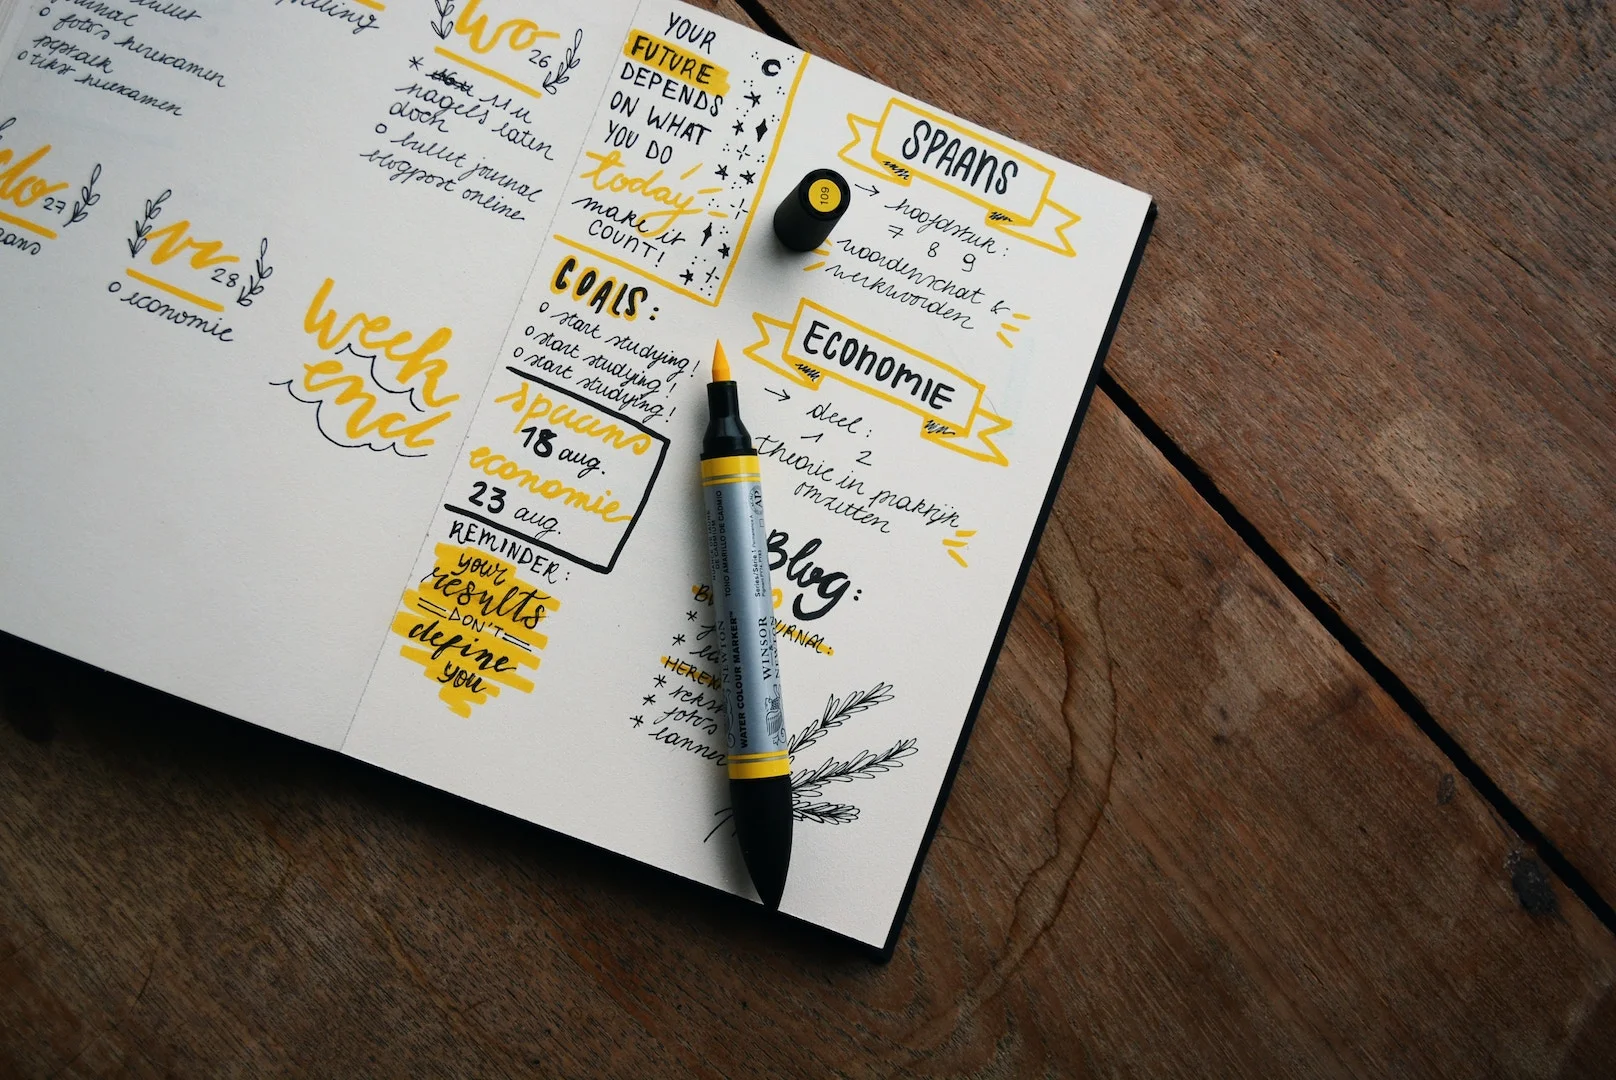 bullet
journal
o foto's herexamen
peptalk
o tekst herexamen
wo 26
* 11 u
nagels laten
doen
o bullet journal
blogpost online
do 27
vr 28
o economie
week
end
YOUR
FUTURE
DEPENDS
ON WHAT
YOU DO
today
make it
COUNT!
GOALS:
o start studying!
o start studying!
o start studying!
spaans
18 aug.
economie
23 aug.
REMINDER:
your
results
DON'T
define
you
SPAANS
→ hoofdstuk:
7 8 9
woordenschat &
werkwoorden
ECONOMIE
→ deel:
1 2
theorie in praktijk
omzetten
Blog:
JOURNAL:
*
*
HEREX
*
* foto's
*
109
TONO AMARILLO DE CADMIO
Series/Série 1
AP
WINSOR
& NEWTON
WATER COLOUR MARKER™